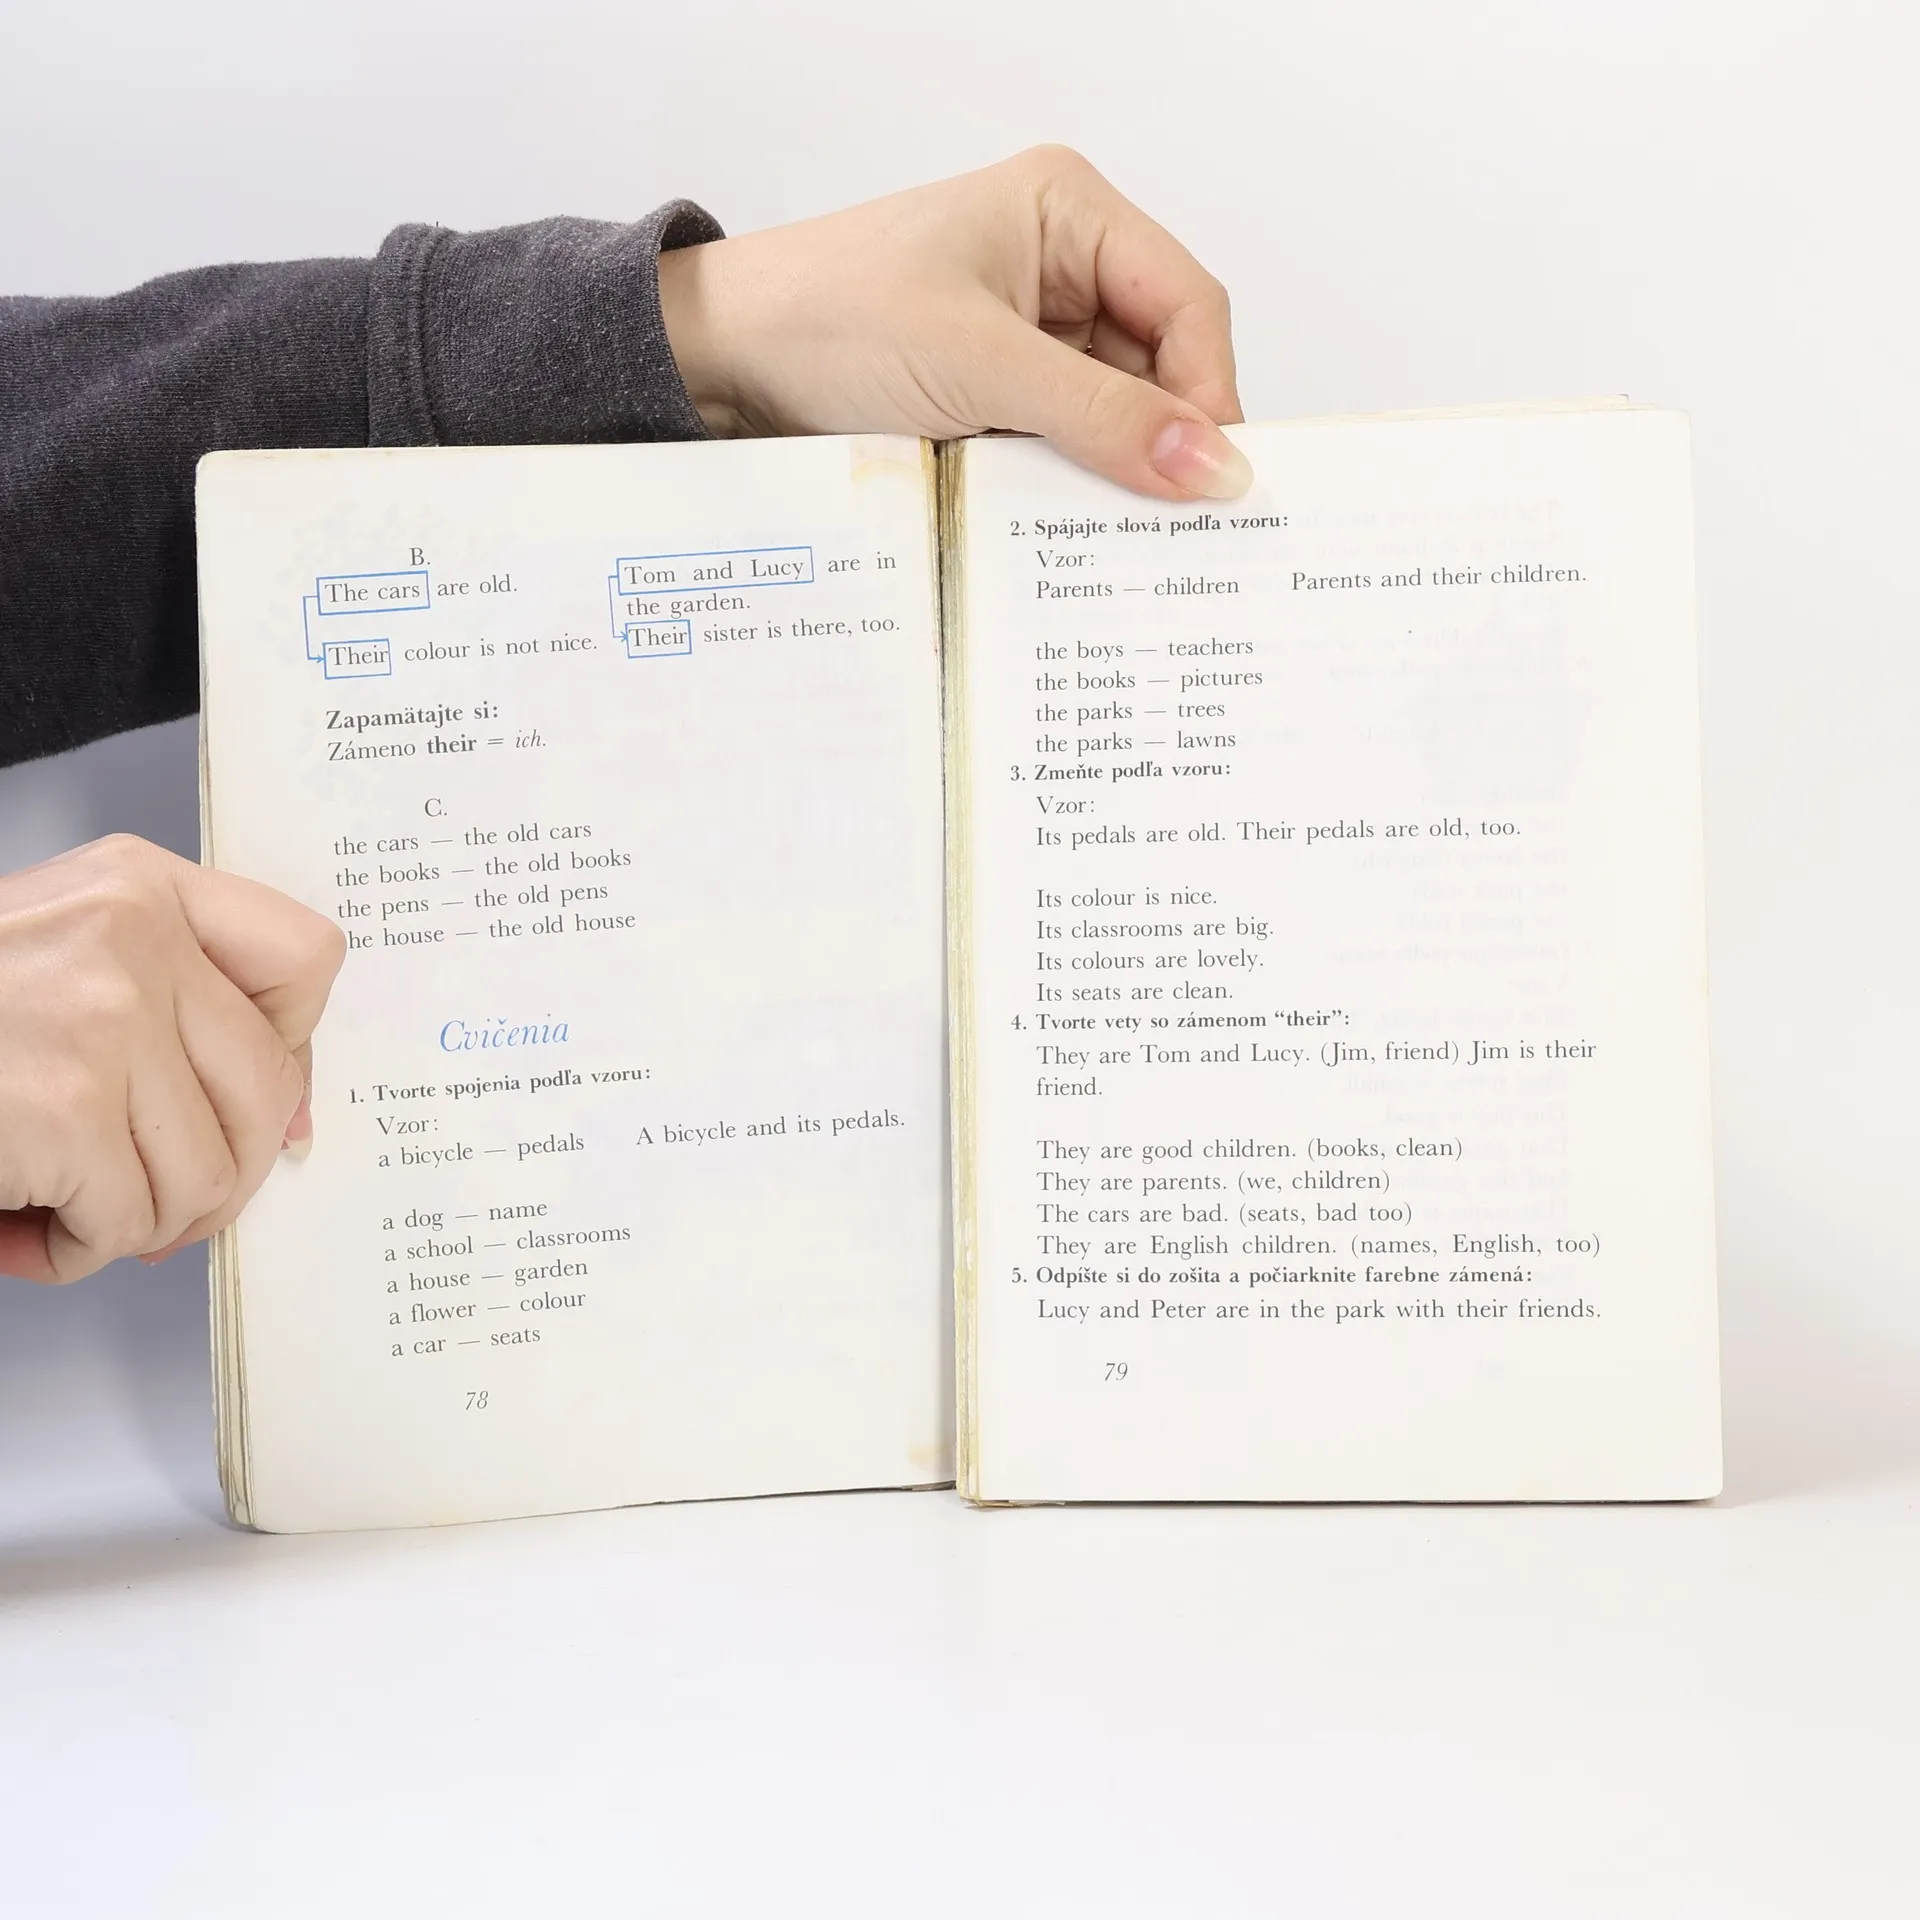 B.
The cars are old.
Their colour is not nice.
Tom and Lucy are in
the garden.
Their sister is there, too.
Zapamätajte si:
Zámeno their = ich.
C.
the cars — the old cars
the books — the old books
the pens — the old pens
he house — the old house
Cvičenia
1. Tvorte spojenia podľa vzoru:
Vzor:
a bicycle — pedals A bicycle and its pedals.
a dog — name
a school — classrooms
a house — garden
a flower — colour
a car — seats
78
2. Spájajte slová podľa vzoru:
Vzor:
Parents — children Parents and their children.
the boys — teachers
the books — pictures
the parks — trees
the parks — lawns
3. Zmeňte podľa vzoru:
Vzor:
Its pedals are old. Their pedals are old, too.
Its colour is nice.
Its classrooms are big.
Its colours are lovely.
Its seats are clean.
4. Tvorte vety so zámenom “their”:
They are Tom and Lucy. (Jim, friend) Jim is their
friend.
They are good children. (books, clean)
They are parents. (we, children)
The cars are bad. (seats, bad too)
They are English children. (names, English, too)
5. Odpíšte si do zošita a počiarknite farebne zámená:
Lucy and Peter are in the park with their friends.
79